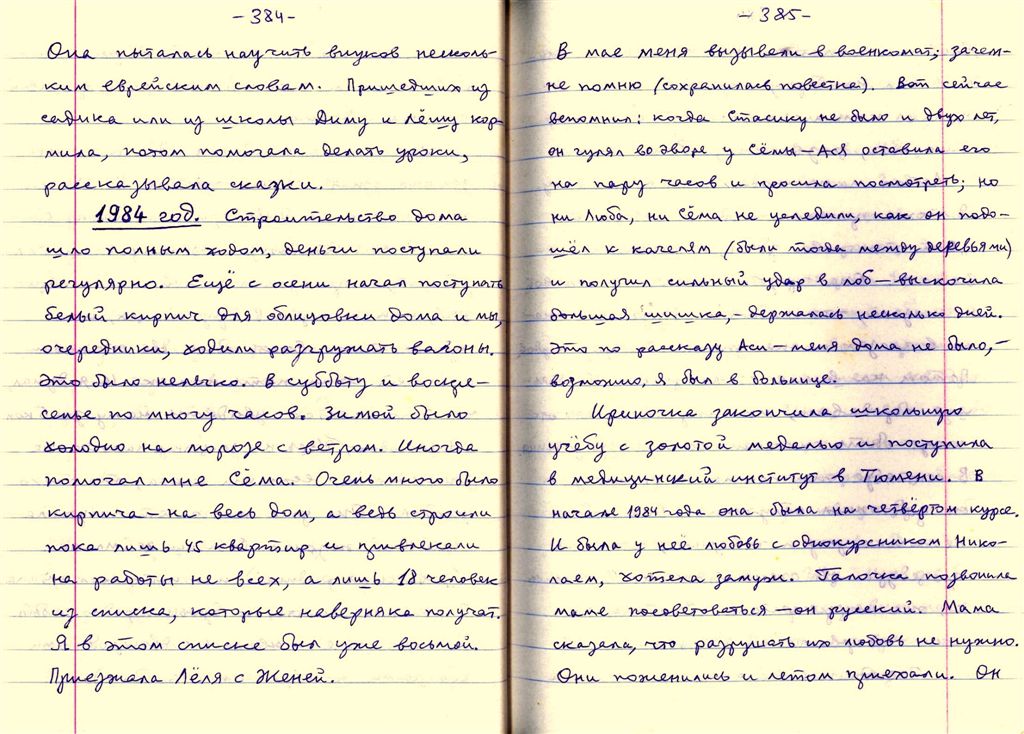 -384-
Она пыталась научить внуков несколь-
ким еврейским словам. Пришедших из
садика или из школы Диму и Лёшу кор-
мила, потом помогала делать уроки,
рассказывала сказки.
1984 год. Строительство дома
шло полным ходом, деньги поступали
регулярно. Ещё с осени начал поступать
белый кирпич для облицовки дома и мы,
очередники, ходили разгружать вагоны.
Это было нелегко. В субботу и воскре-
сенье по многу часов. Зимой было
холодно на морозе с ветром. Иногда
помогал мне Сёма. Очень много было
кирпича - на весь дом, а ведь строили
пока лишь 45 квартир и привлекали
на работы не всех, а лишь 18 человек
из списка, которые наверняка получат.
Я в этом списке был уже восьмой.
Приезжала Лёля с Женей.
-385-
В мае меня вызывали в военкомат; зачем-
не помню (сохранилась повестка). Вот сейчас
вспомнил: когда Стасику не было и двух лет,
он гулял во дворе у Сёмы - Ася оставила его
на пару часов и просила посмотреть; но
ни Люба, ни Сёма не уследили, как он подо-
шёл к качелям (были тогда между деревьями)
и получил сильный удар в лоб - выскочила
большая шишка, - держалась несколько дней.
Это по рассказу Аси - меня дома не было, -
возможно, я был в больнице.
Ириночка закончила школьную
учёбу с золотой медалью и поступила
в медицинский институт в Тюмени. В
начале 1984 года она была на четвёртом курсе.
И была у неё любовь с однокурсником Нико-
лаем, хотела замуж. Галочка позвонила
маме посоветоваться - он русский. Мама
сказала, что разрушать их любовь не нужно.
Они поженились и летом приехали. Он